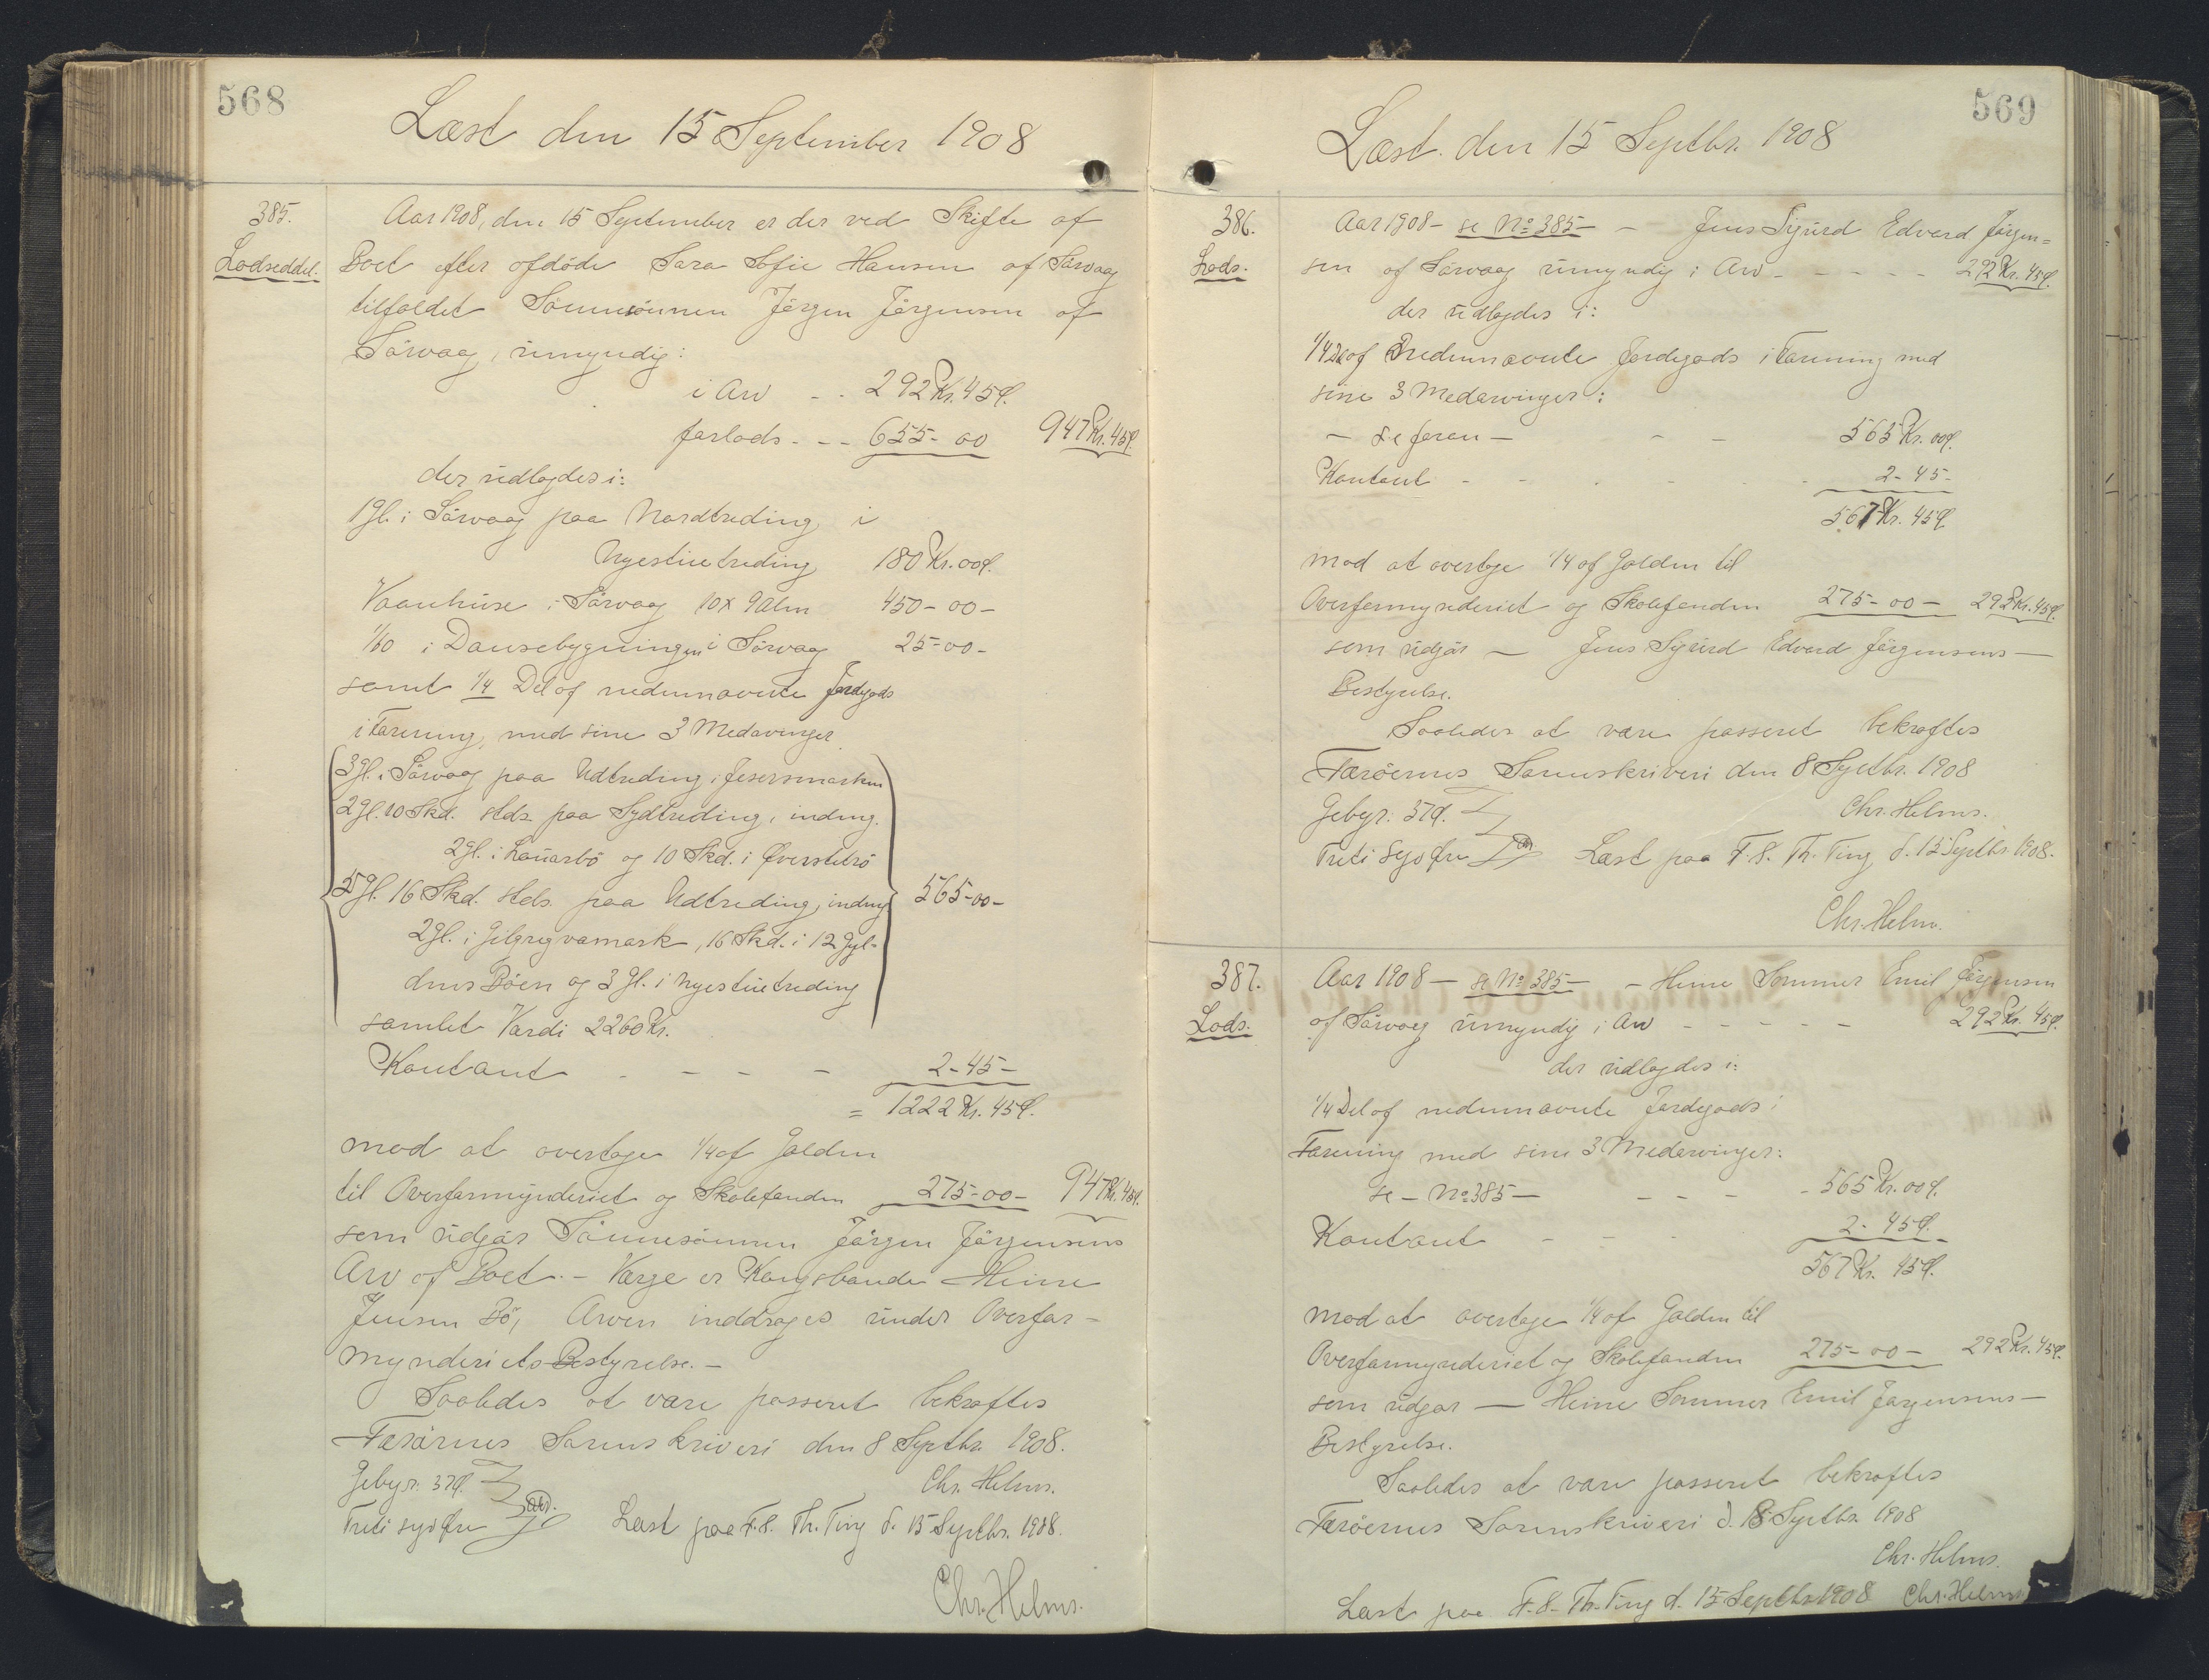 568
Læst den 15 September 1908
385.
Lodseddel.
Aar 1908, den 15 September er der ved Skifte af
Boet efter afdöde Sara Sofie Hansen af Sörvaag
tilfaldet Sönnesönnen Jörgen Jörgensen af
Sörvaag, umyndig:
i Arv - - 292 Kr. 45 Ø.
forlods - - - 655 - 00 947 Kr. 45 Ø.
der udlagdes i:
1 Gl. i Sörvaag paa Nordtreding i
Nyestuetreding 180 Kr. 00 Ø.
Vaanhuse i Sörvaag 10 x 9 Alen 450 - 00 -
1/60 i Dansebygningen i Sörvaag 25 - 00 -
samt 1/4 Del af nedennævnte Jordegods
i Forening med sine 3 Medarvinger
3 Gl. i Sörvaag paa Udtreding i
2 Gl. 10 Skd. stds. paa Sydtreding, indeng.
2 Gl. i og 10 Skd. i
5 Gl. 16 Skd. stds. paa Udtreding, indeng 565 - 00 -
2 Gl. i , 16 Skd. i 12 Gyl-
dens Böen og 3 Gl. i Nyestuetreding
samlet Værdi 2260 Kr.
Kontant - - - - 2 - 45 -
= 1222 Kr. 45 Ø.
mod at overtage 1/4 af Gælden
til Overformynderiet og Skolefonden 275 - 00 - 947 Kr. 45 Ø.
som udgör Sönnesönnen Jörgen Jörgensens
Arv af Boet. - Værge er Kongsbonde Heine
Jensen Bö, Arven inddrages under Overfor-
mynderiets Bestyrelse. -
Saaledes at være passeret bekræftes
Færöernes Sorenskriveri den 8 Septbr. 1908.
Gebyr. 37 Ø. Chr. Helms.
Treti syv Öre Læst paa F. S. Th. Ting d. 15 Septbr. 1908.
Chr. Helms.
569
Læst den 15 Septbr. 1908
386.
Lods.
Aar 1908 - se No 385 - - Jens Sigurd Edvard Jörgen=
sen af Sörvaag umyndig i Arv - - - - - 292 Kr. 45 Ø.
der udlagdes i:
1/4 Del af nedennævnte Jordegods i Forening med
sine 3 Medarvinger:
- se foran - - - 565 Kr. 00 Ø.
Kontant - - - - - - 2 - 45 -
567 Kr. 45 Ø.
mod at overtage 1/4 af Gælden til
Overformynderiet og Skolefonden 275 - 00 - 292 Kr. 45 Ø.
som udgör - Jens Sigurd Edvard Jörgensens -
Bestyrelse.
Saaledes at være passeret bekræftes
Færöernes Sorenskriveri den 8 Septbr. 1908
Gebyr. 37 Ø. Chr. Helms.
Treti syv Öre Læst paa F. S. Th. Ting d. 15 Septbr. 1908.
Chr. Helms.
387.
Lods.
Aar 1908 - se No 385 - - Heine Sommer Emil Jörgensen
af Sörvaag umyndig i Arv - - - - - 292 Kr. 45 Ø.
der udlagdes i:
1/4 Del af nedennævnte Jordegods i
Forening med sine 3 Medarvinger:
se - No 385 - - - - - 565 Kr. 00 Ø.
Kontant - - - 2 - 45 Ø.
567 Kr. 45 Ø.
mod at overtage 1/4 af Gælden til
Overformynderiet og Skolefonden 275 - 00 - 292 Kr. 45 Ø.
som udgör - Heine Sommer Emil Jörgensens -
Bestyrelse.
Saaledes at være passeret bekræftes
Færöernes Sorenskriveri d. 8 Septbr. 1908
Chr. Helms.
Læst paa F. S. Th. Ting d. 15 Septbr 1908 Chr. Helms